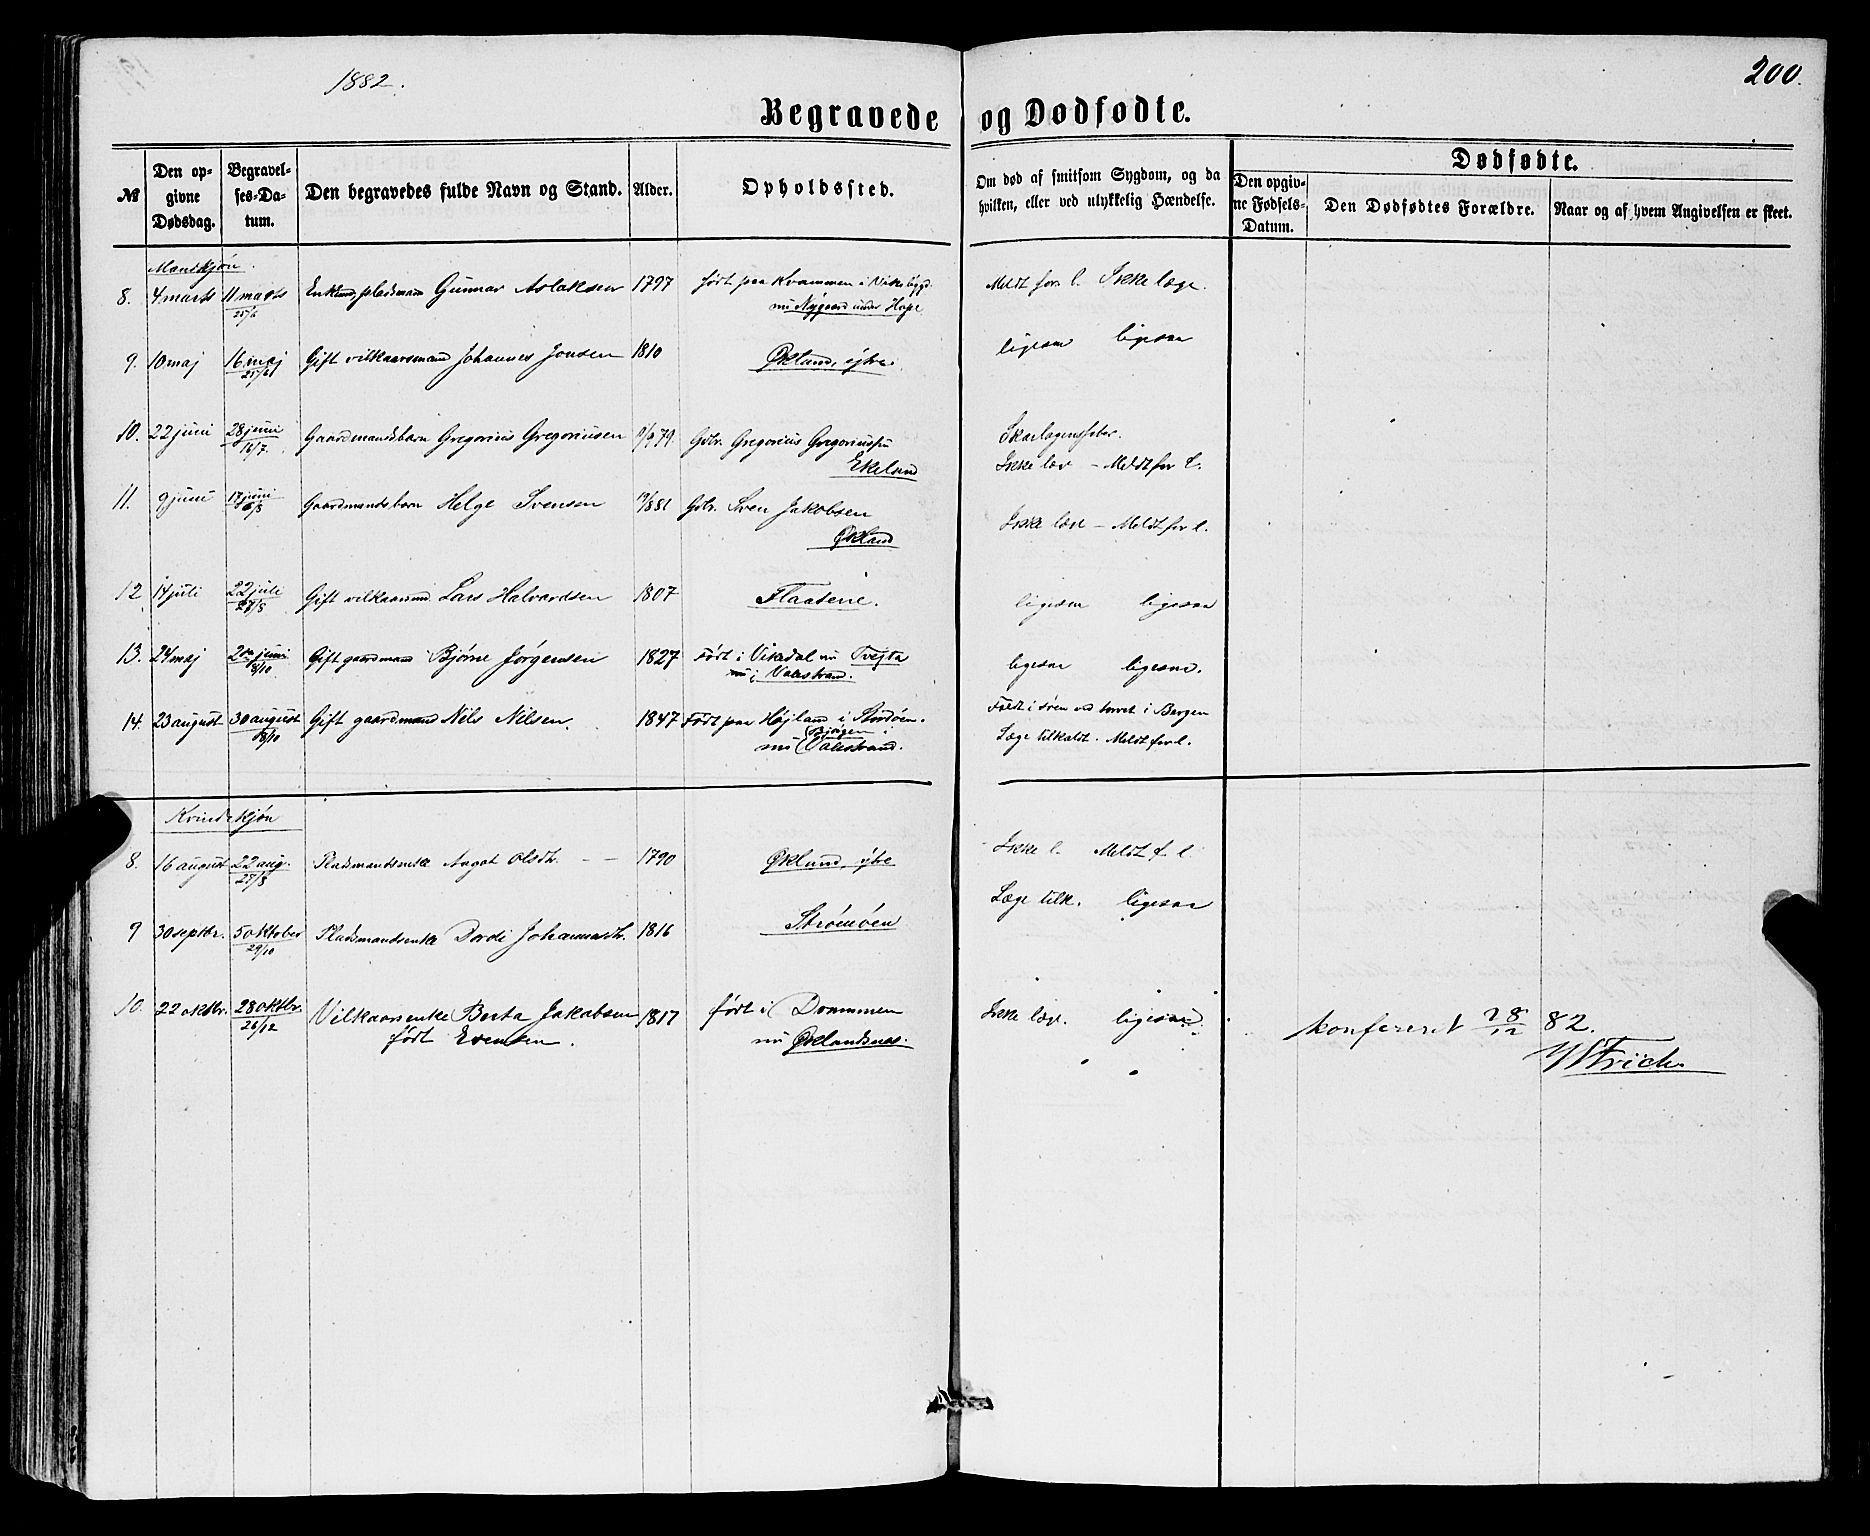 1882.
200.
Begravede og Dødfødte.
№
Den opgivne Dødsdag.
Begravelses-Datum.
Den begravedes fulde Navn og Stand.
Alder.
Opholdssted.
Om død af smitsom Sygdom, og da hvilken, eller ved ulykkelig Hændelse.
Dødfødte.
Den opgivne Fødsels-Datum.
Den Dødfødtes Forældre.
Naar og af hvem Angivelsen er skeet.
Mandkjøn.
8. 4 marts 11 marts Gunnar Aslaksen 1797 født paa Kvammen i Vikebygd. Meldt for l. Ikke læge.
25/6 nu Nygaard under Hope
9. 10 maj 16 maj Gift vilkaarsmand Johannes Jonsen 1810 Økland, ytre. ligesaa ligesaa
25/6
10. 22 juni 28 juni Gaardmandsbarn Gregorius Gregoriussen 9/9 79. Gdbr. Gregorius Gregoriussen Skarlagensfeber.
16/7. Ekeland Ikke læg. – Meldt for l.
11. 9 juni 17 juni Gaardmandsbarn Helge Svensen 19/8 81 Gdbr. Sven Jakobsen
Økland Ikke læge – Meldt for l.
12 14 juli 22 juli Gift vilkaarsmd. Lars Halvardsen 1807 Flaatene. ligesaa ligesaa
27/8
13. 24 maj 2den juni Gift gaardmand Bjørne Jørgensen 1827 Født i Vikedal nu Tvejta ligesaa ligesaa.
8/10 i Valestrand.
14. 23 august 30 august Gift gaardmand Nils Nilsen. 1847 Født paa Højland i Stordøen. Faldt i søen ved torvet i Bergen
8/10 nu Valestrand. Læge tilkaldt. Meldt for l.
Kvindekjøn
8. 16 august 22 aug. Pladsmandsenke Aagot Olsdtr. – – 1790 Økland, ytre Ikke l. Meldt f. l.
27/8
9 30 septbr. 5 oktober Pladsmandsenke Dordi Johannesdtr. 1816 Strømøen Læge tilk. ligesaa
29/10
10. 22 oktbr. 28 oktbr. Vilkaarsenke Berta Jakobsen 1817 født i Drammen Ikke læge. ligesaa
26/12 født Evensen. nu Øklandsnes.
konfereret 28/12 82.